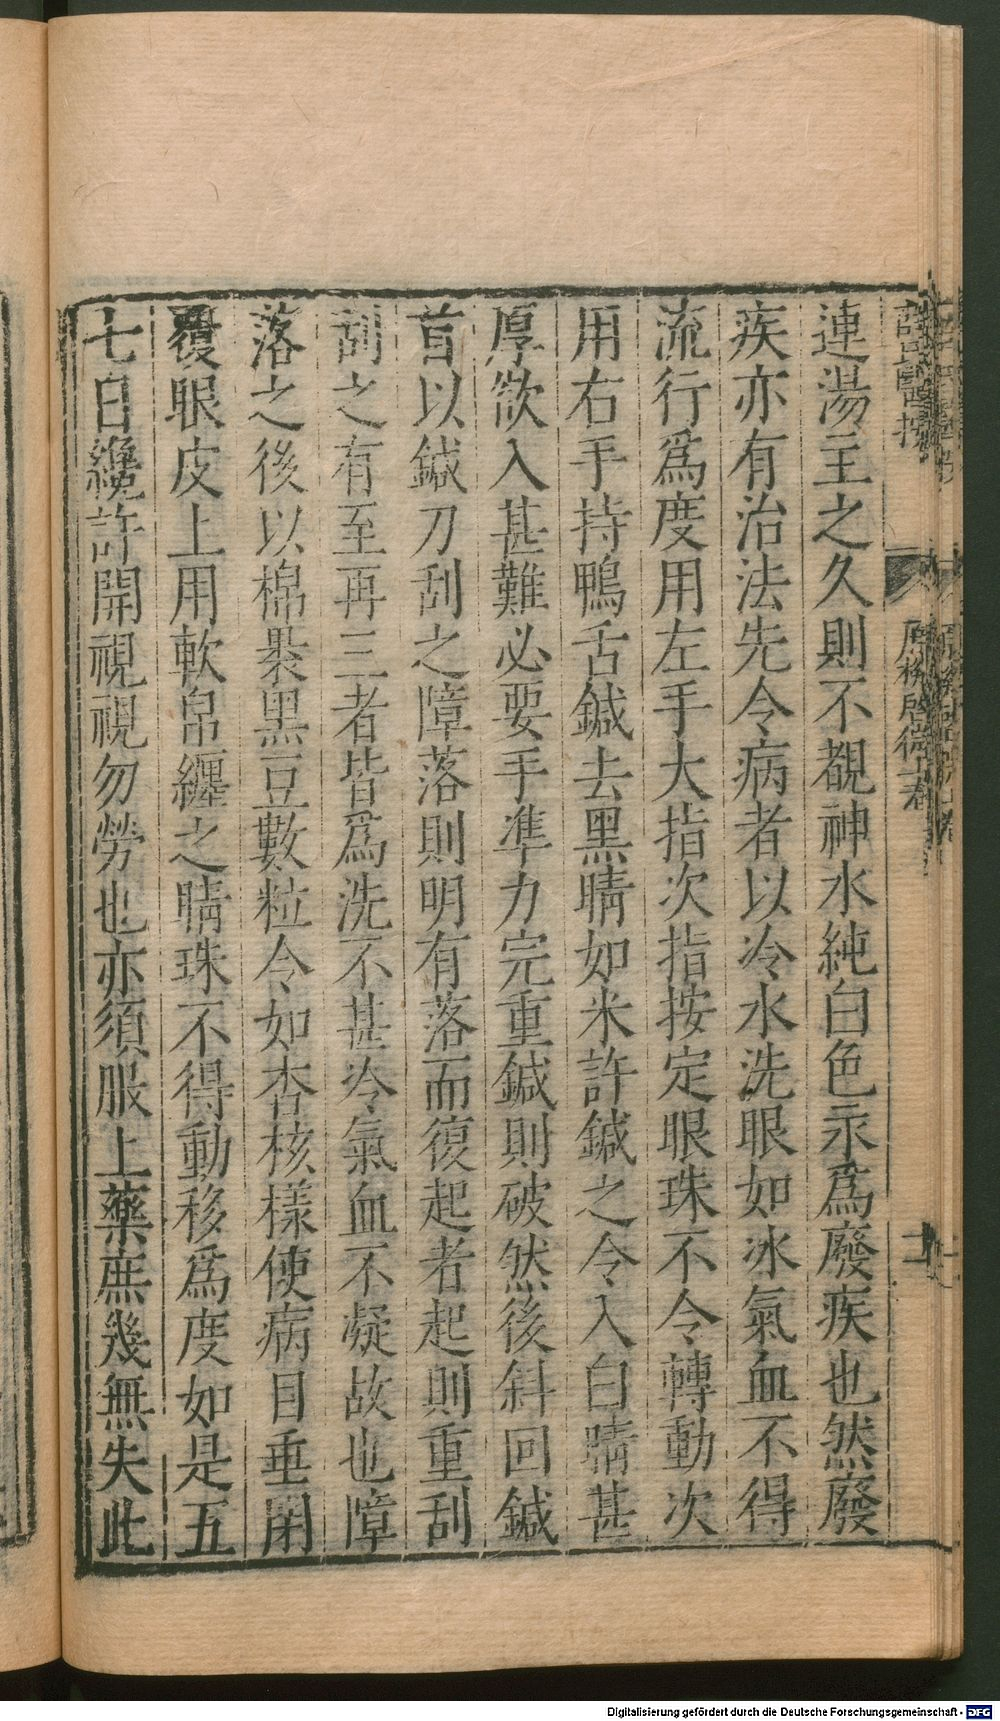 連湯主之久則不覩神水純白色永爲廢疾也然廢
疾亦有治法先令病者以冷水洗眼如冰氣血不得
流行爲度用左手大指次指按定眼珠不令轉動次
用右手持鴨舌鍼去黑睛如米許鍼之令入白睛甚
厚欲入甚難必要手準力完重鍼則破然後斜回鍼
首以鍼刀刮之障落則明有落而復起者起則重刮
刮之有至再三者皆爲洗不甚冷氣血不凝故也障
落之後以棉裹黑豆數粒令如杏核樣使病目垂閉
覆眼皮上用軟帛纏之睛珠不得動移爲度如是五
七日纔許開視視勿勞也亦須服上藥庶幾無失此
Digitalisierung gefördert durch die Deutsche Forschungsgemeinschaft - DFG